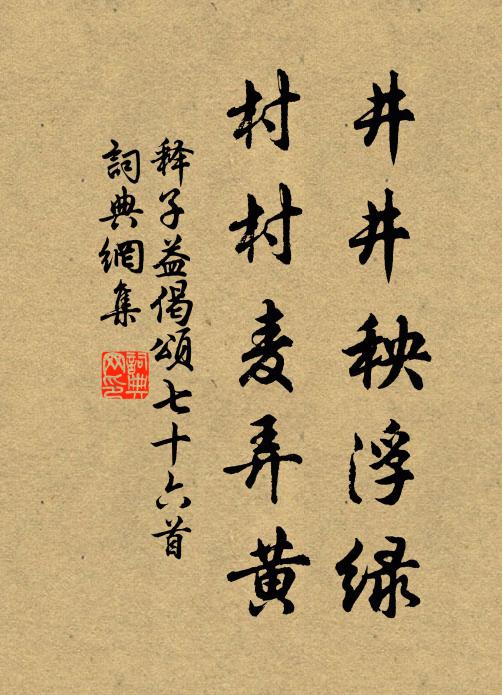 井井秧浮绿
村村麦弄黄
释子益偈颂七十六首
詞典網集
詞典网印